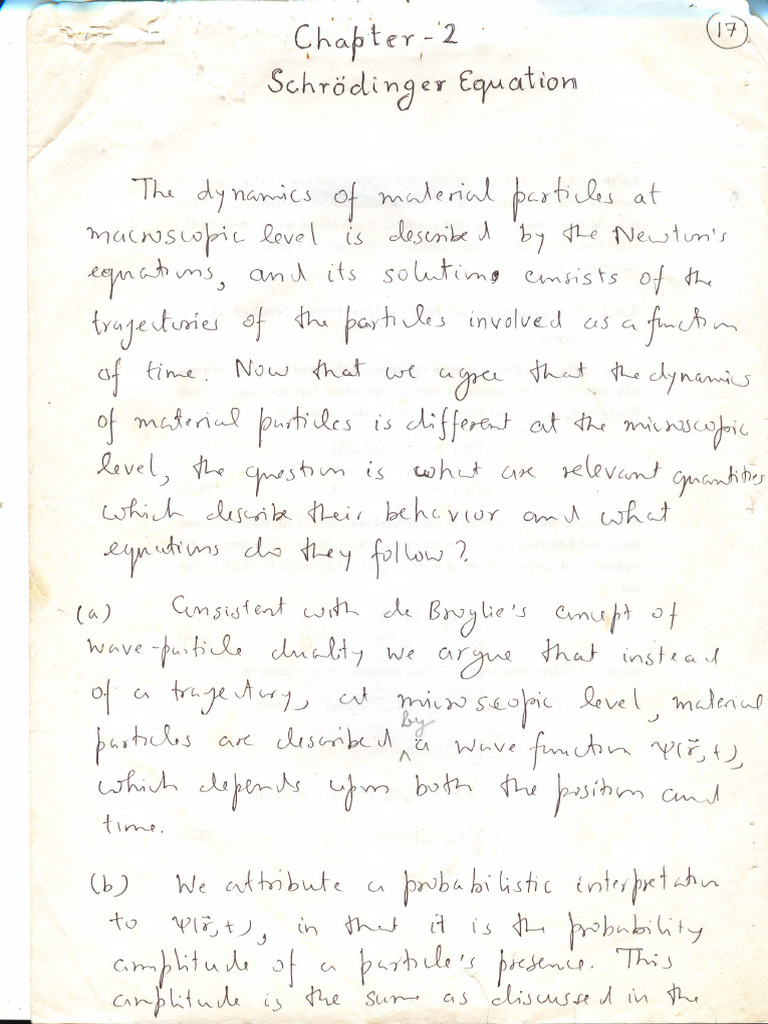 17
Chapter-2
Schrödinger Equation
The dynamics of material particles at
macroscopic level is described by the Newton's
equations, and its solutions consists of the
trajectories of the particles involved as a function
of time. Now that we agree that the dynamics
of material particles is different at the microscopic
level, the question is what are relevant quantities
which describe their behavior and what
equations do they follow?
(a) Consistent with de Broglie's concept of
wave-particle duality we argue that instead
of a trajectory, at microscopic level, material
particles are described by a wave function ψ(r⃗,t),
which depends upon both the position and
time.
(b) We attribute a probabilistic interpretation
to ψ(r⃗,t), in that it is the probability
amplitude of a particle's presence. This
amplitude is the same as discussed in the